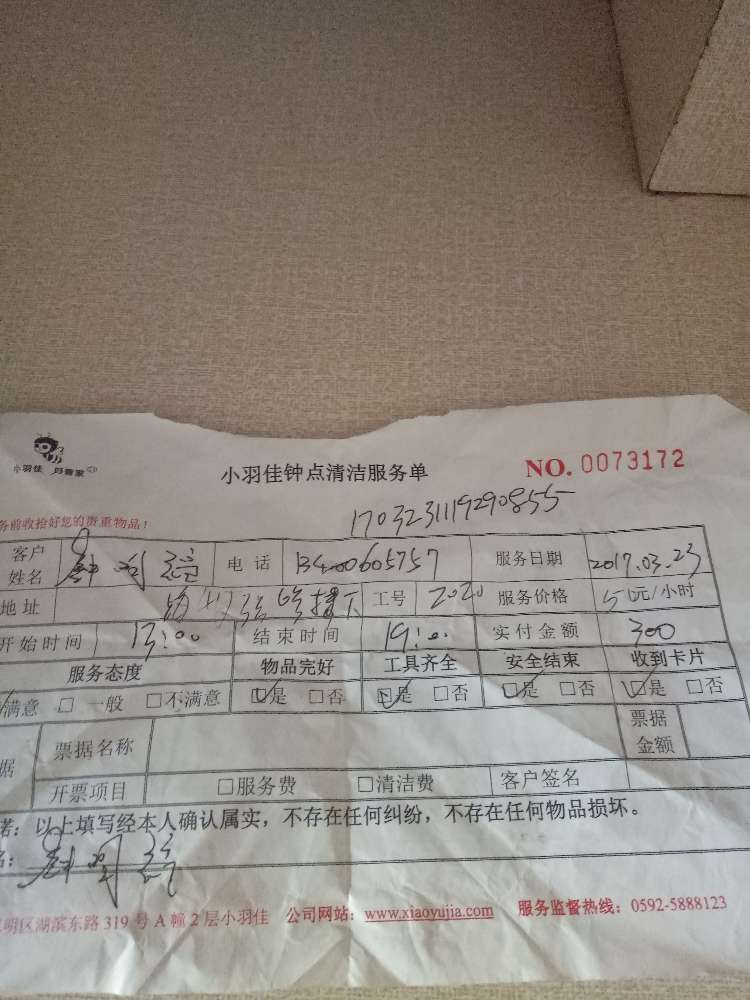 小羽佳 好管家
小羽佳钟点清洁服务单 NO. 0073172
务前收拾好您的贵重物品!
1703231119290855
客户姓名 电话 13400605757 服务日期 2017.03.23
地址 工号 2020 服务价格 元/小时
开始时间 13:00 结束时间 19:00 实付金额 300
服务态度 物品完好 工具齐全 安全结束 收到卡片
满意 □ 一般 □不满意 □是 □否 □是 □否 □是 □否 □是 □否
据 票据名称 票据金额
开票项目 □服务费 □清洁费 客户签名
诺:以上填写经本人确认属实,不存在任何纠纷,不存在任何物品损坏。
明区湖滨东路 319 号 A 幢 2 层小羽佳 公司网站:www.xiaoyujia.com 服务监督热线:0592-5888123